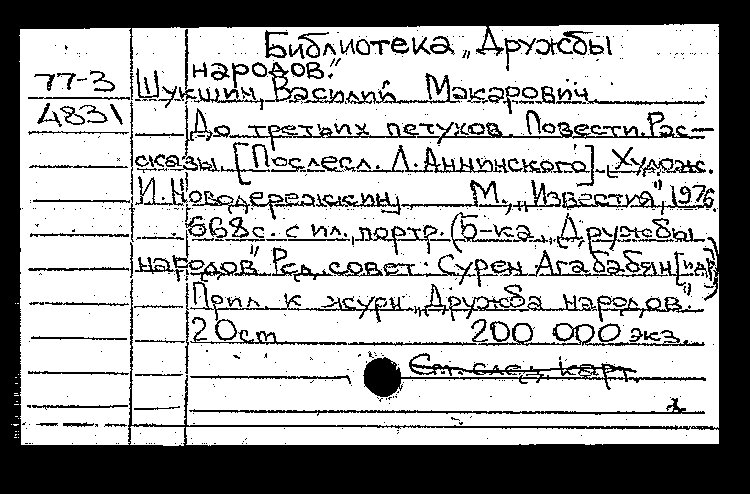 Библиотека „Дружбы
народов."
77-3 Шукшин, Василий Макарович.
4831 До третьих петухов. Повести. Рас-
сказы. [Послесл. Л. Аннинского]. Худож.
И. Новодережкин. М., „Известия", 1976.
668 с. с ил., портр. (Б-ка „Дружбы
народов". Ред. совет: Сурен Агабабян [и др.])
Прил. к журн. „Дружба народов."
20 см 200 000 экз.
См. след. карт.